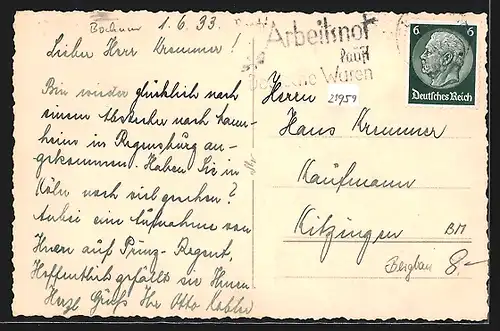 Bochum 1.6.33.
Lieber Herr Krummer!
Bin wieder glücklich nach
einem Abstecher nach Mann-
heim in Regensburg an-
gekommen. Haben Sie in
Köln noch viel gesehen?
Anbei eine Aufnahme von
Ihnen auf Prinz-Regent,
Hoffentlich gefällt sie Ihnen
Herzl Grüße Ihr Otto
Arbeitsnot
kauft
Deutsche Waren
6 6
Deutsches Reich
Herrn
21959
Hans Krummer
Kaufmann
Kitzingen
BM
Bergbau 8.-